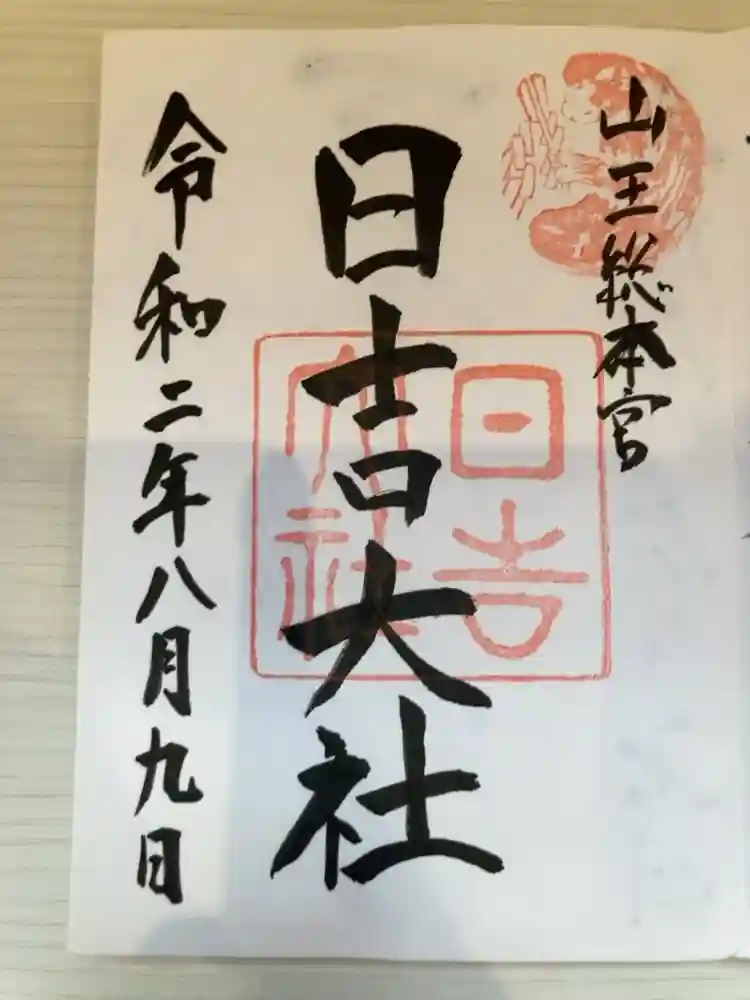 山王総本宮
日吉大社
日吉
大社
令和二年八月九日